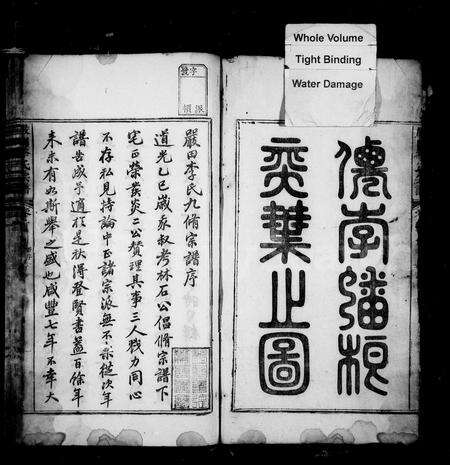 Whole Volume
Tight Binding
Water Damage
僊李蟠根
奕葉止圖
字
號
限
領
嚴田李氏九脩宗譜序
道光乙巳歲泰叔考林石公倡脩宗譜下
宅正榮黃炎二公贊理其事三人戮力同心
不存私見持論中正諸宗派無不樂從次年
譜告成予適於是秋得登賢書蓋百餘年
來未有如斯舉之盛也咸豐七年不幸大